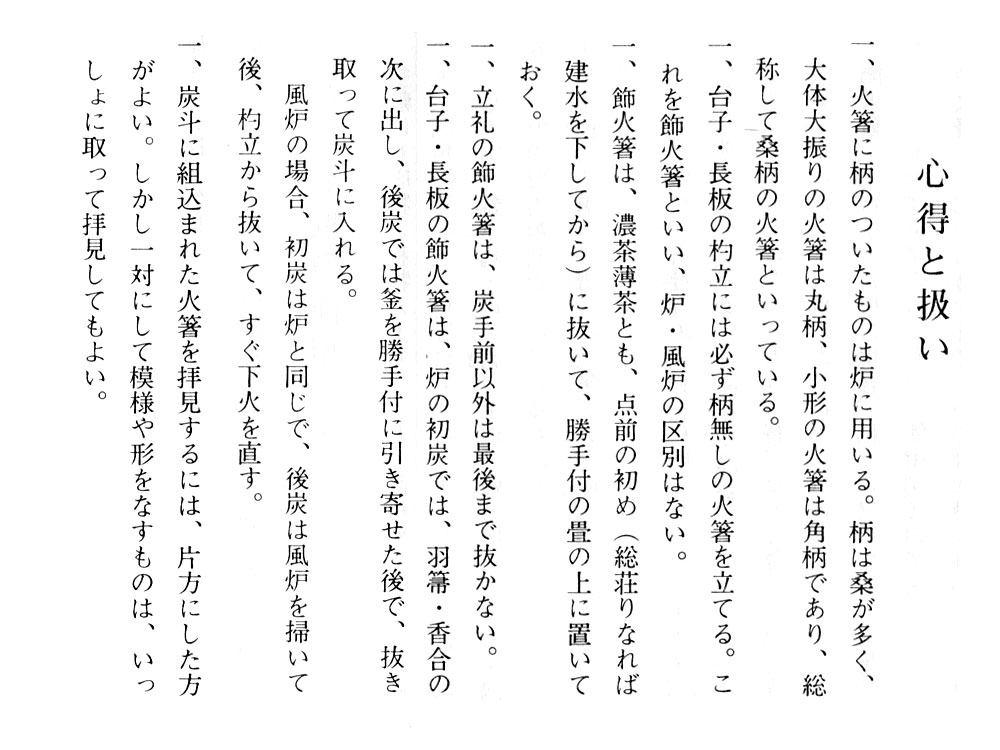 心得と扱い
一、火箸に柄のついたものは炉に用いる。柄は桑が多く、
大体大振りの火箸は丸柄、小形の火箸は角柄であり、総
称して桑柄の火箸といっている。
一、台子・長板の杓立には必ず柄無しの火箸を立てる。こ
れを飾火箸といい、炉・風炉の区別はない。
一、飾火箸は、濃茶薄茶とも、点前の初め（総荘りなれば
建水を下してから）に抜いて、勝手付の畳の上に置いて
おく。
一、立礼の飾火箸は、炭手前以外は最後まで抜かない。
一、台子・長板の飾火箸は、炉の初炭では、羽箒・香合の
次に出し、後炭では釜を勝手付に引き寄せた後で、抜き
取って炭斗に入れる。
風炉の場合、初炭は炉と同じで、後炭は風炉を掃いて
後、杓立から抜いて、すぐ下火を直す。
一、炭斗に組込まれた火箸を拝見するには、片方にした方
がよい。しかし一対にして模様や形をなすものは、いっ
しょに取って拝見してもよい。